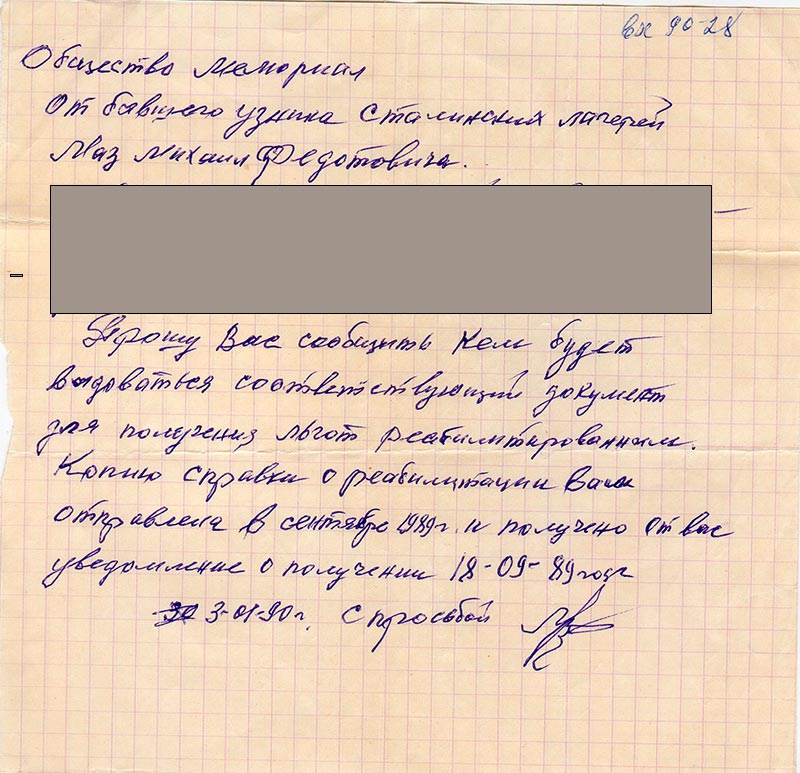 вх 90-28
Общество мемориал
От бавшего узника Сталинских лагерей
Маз Михаил Федотовича.
Прошу Вас сообщить Кем будет
выдоваться соответствующий документ
для получения льгот реабилитированным.
Копию справки о реабилитации Вам
отправлена в сентябре 1989г. и получено от вас
уведомление о получении 18-09-89 года
3-01-90г. С просьбой